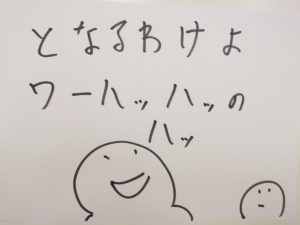 となるわけよ
ワーハッハッの
ハッ